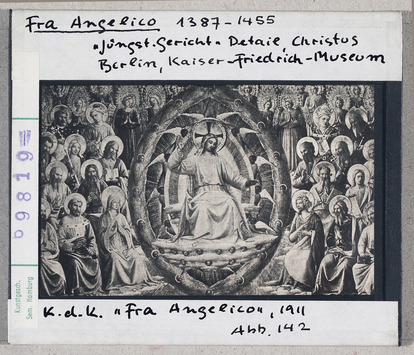 Fra Angelico 1387-1455
"Jüngst. Gericht" Detail, Christus
Berlin, Kaiser-Friedrich-Museum
69819
Kunstgesch.
Sem. Hamburg
K.d.K. "Fra Angelico", 1911
Abb. 142